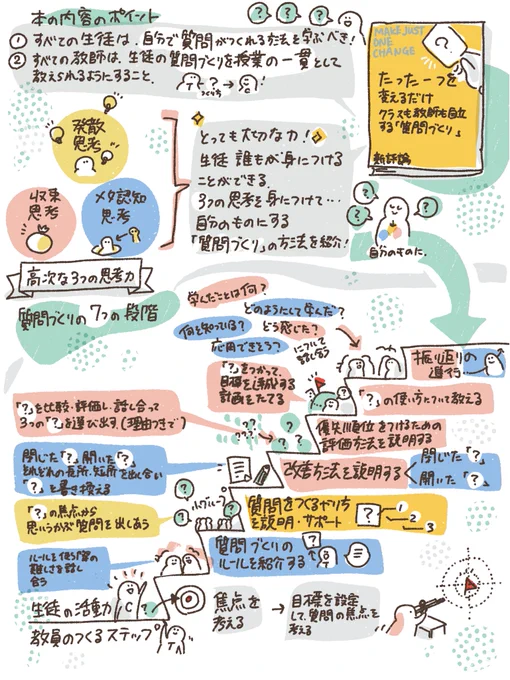 本の内容のポイント
① すべての生徒は、自分で質問がつくれる方法を学ぶべき!
② すべての教師は、生徒の質問づくりを授業の一貫として
教えられるようにすること。
MAKE JUST
ONE
CHANGE
?
たった一つを
変えるだけ
クラスも教師も自立
する「質問づくり」
新評論
発散
思考
収束
思考
メタ認知
思考
高次な3つの思考力
とっても大切な力!
生徒 誰もが身につける
ことができる
3つの思考を身につけて…
自分のものにする
「質問づくり」の方法を紹介!
自分のものに。
質問づくりの7つの段階
学んだことは何?
どのようにして学んだ?
何を知っている?
どう感じた?
応用できそう?
について
話し合う
振り返りの
遂行
「?」をつかって、
目標を達成する
計画をたてる
「?」の使い方について教える
「?」を比較・評価し、話し合って
3つの「?」を選び出す。(理由つきで)
優先順位をつけるための
評価方法を説明する
閉じた「?」開いた「?」
それぞれの長所・短所を出し合い
「?」を書き換える
改善方法を説明する
閉じた「?」
開いた「?」
「?」の焦点から
思いうかぶ質問を出しあう
小グループ
質問をつくるやり方
を説明・サポート
?
1
2
3
ルールを使う際の
難しさを話し
合う
質問づくりの
ルールを紹介する
生徒の活動
教員のつくるステップ
焦点を
考える
→
目標を設定
して、質問の焦点を
考える